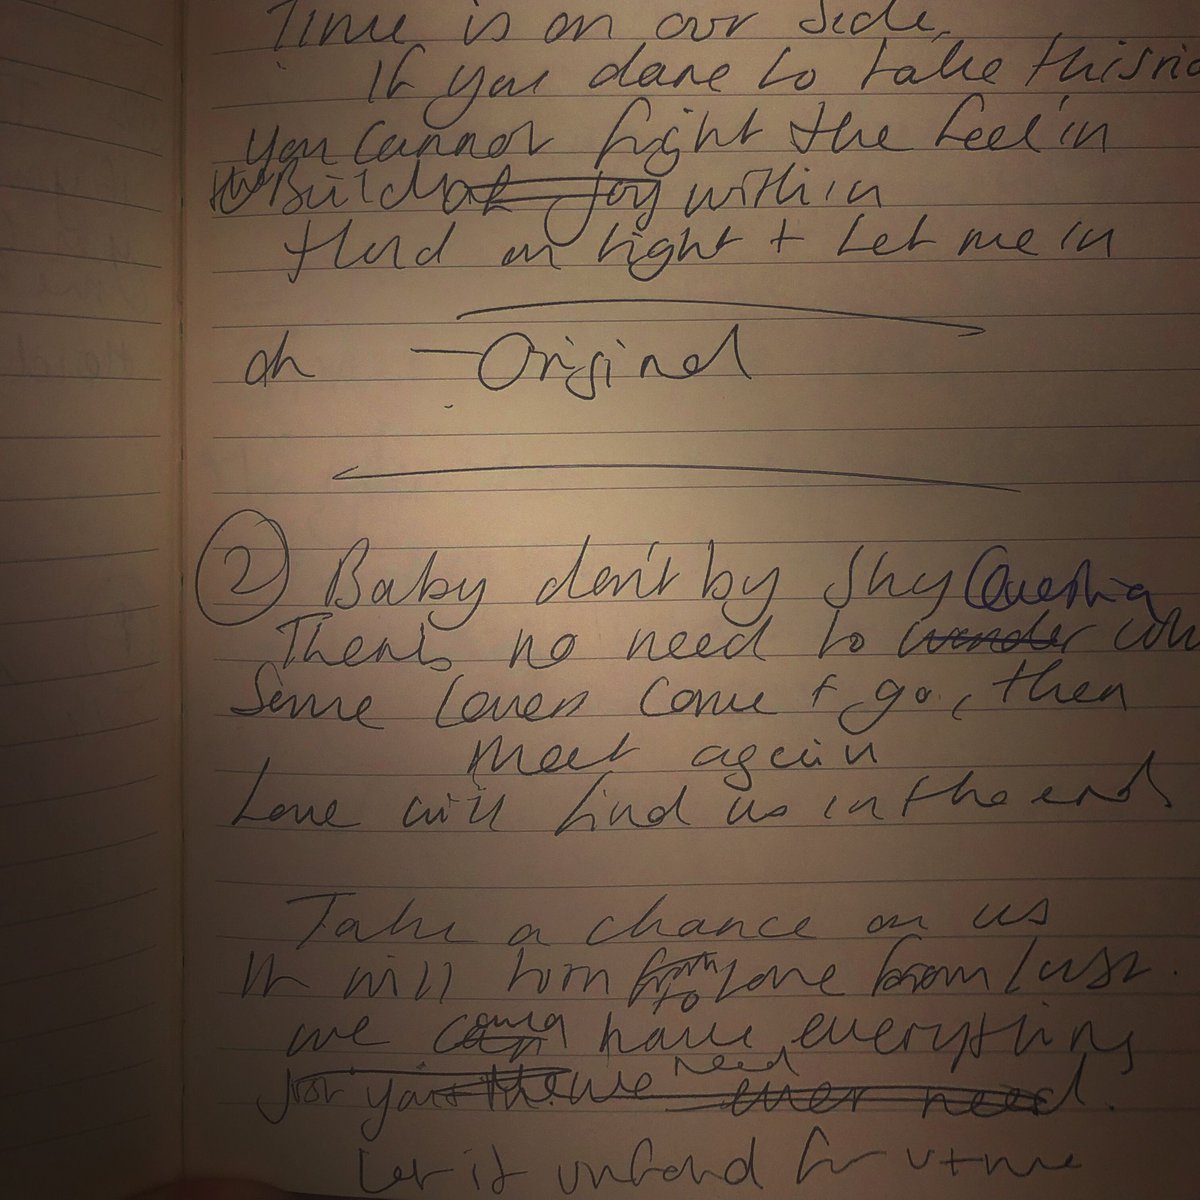 Time is on our side,
If you dare to take this
You cannot fight the feel'in
Build joy within
Hold on tight + Let me in
oh - Original
2 Baby don't by shy Question
There's no need to wonder
Some lovers come + go, then
meet again
Love will find us in the end
Take a chance on us
It will turn from to love from lust.
we could have everything
you the we need ever need.
Let it unfold for u + me